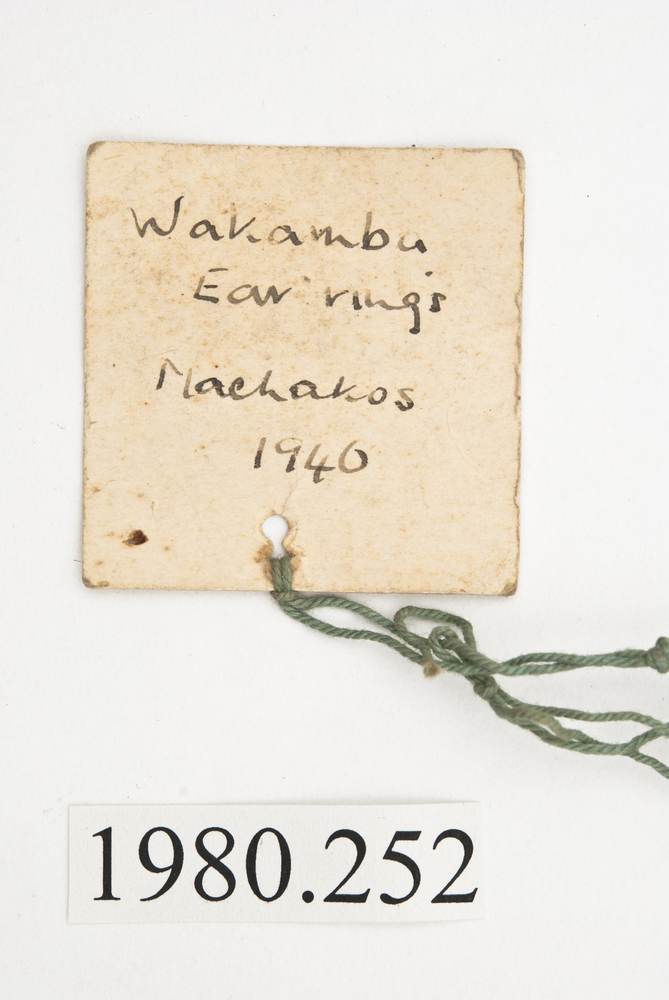 Wakamba
Ear rings
Machakos
1940
1980.252